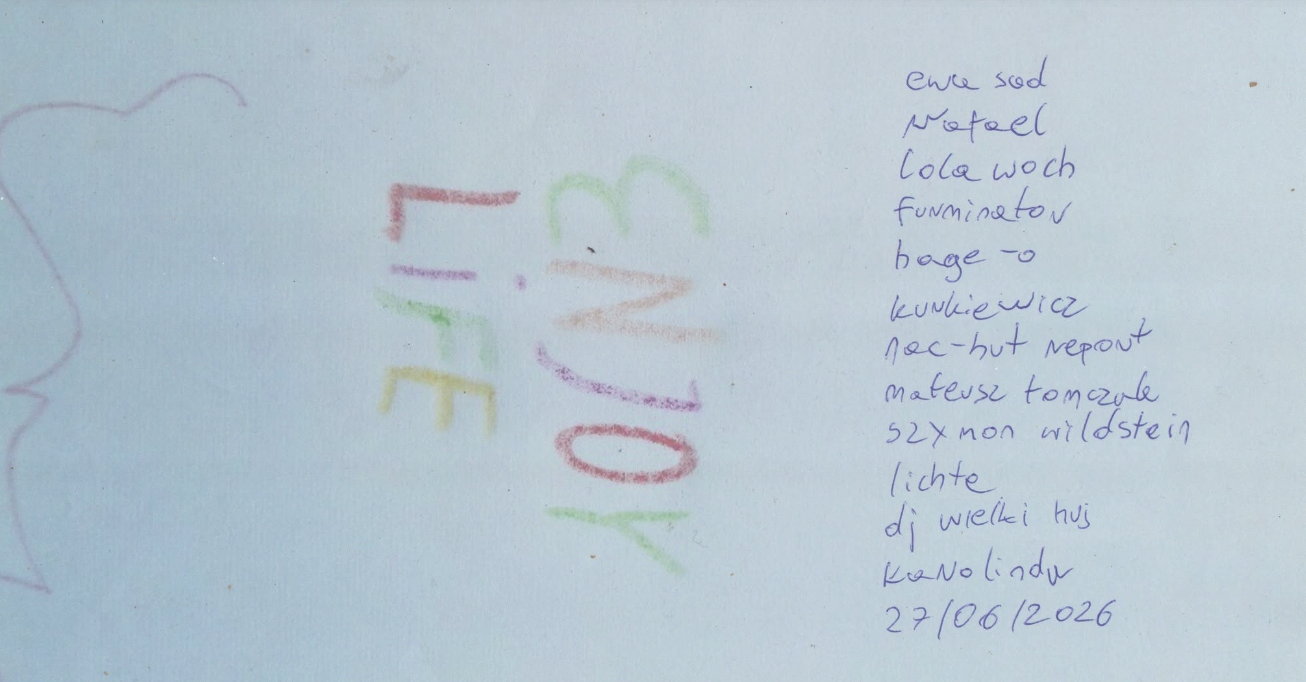 ENJOY
LIFE
ewa sad
rafael
lola woch
furminator
hage -o
kurkiewicz
nac-hut report
mateusz tomczak
szymon wildstein
lichte
dj wielki huj
karolindr
27/06/2026